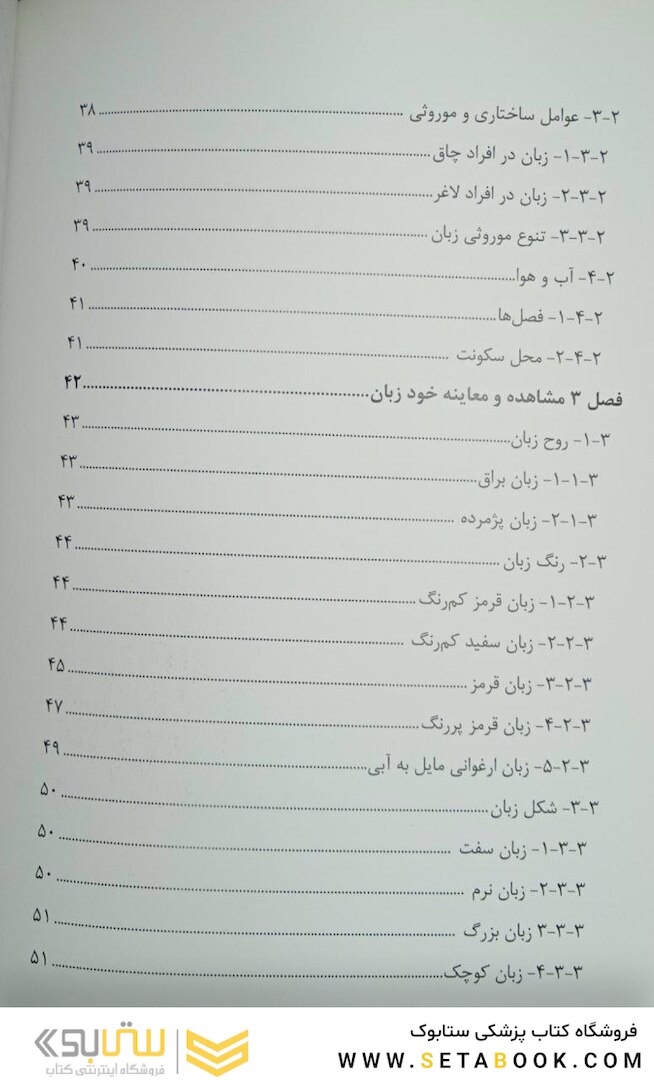 ۲-۳- عوامل ساختاری و موروثی ........ ۳۸
۲-۳-۱- زبان در افراد چاق ........ ۳۹
۲-۳-۲- زبان در افراد لاغر ........ ۳۹
۲-۳-۳- تنوع موروثی زبان ........ ۳۹
۲-۴- آب و هوا ........ ۴۰
۲-۴-۱- فصل‌ها ........ ۴۱
۲-۴-۲- محل سکونت ........ ۴۱
فصل ۳ مشاهده و معاینه خود زبان ........ ۴۲
۳-۱- روح زبان ........ ۴۳
۳-۱-۱- زبان براق ........ ۴۳
۳-۱-۲- زبان پژمرده ........ ۴۳
۳-۲- رنگ زبان ........ ۴۴
۳-۲-۱- زبان قرمز کم‌رنگ ........ ۴۴
۳-۲-۲- زبان سفید کم‌رنگ ........ ۴۴
۳-۲-۳- زبان قرمز ........ ۴۵
۳-۲-۴- زبان قرمز پررنگ ........ ۴۷
۳-۲-۵- زبان ارغوانی مایل به آبی ........ ۴۹
۳-۳- شکل زبان ........ ۵۰
۳-۳-۱- زبان سفت ........ ۵۰
۳-۳-۲- زبان نرم ........ ۵۰
۳-۳-۳ زبان بزرگ ........ ۵۱
۳-۳-۴- زبان کوچک ........ ۵۱
فروشگاه کتاب پزشکی ستابوک
WWW.SETABOOK.COM
ستابوک
فروشگاه اینترنتی کتاب